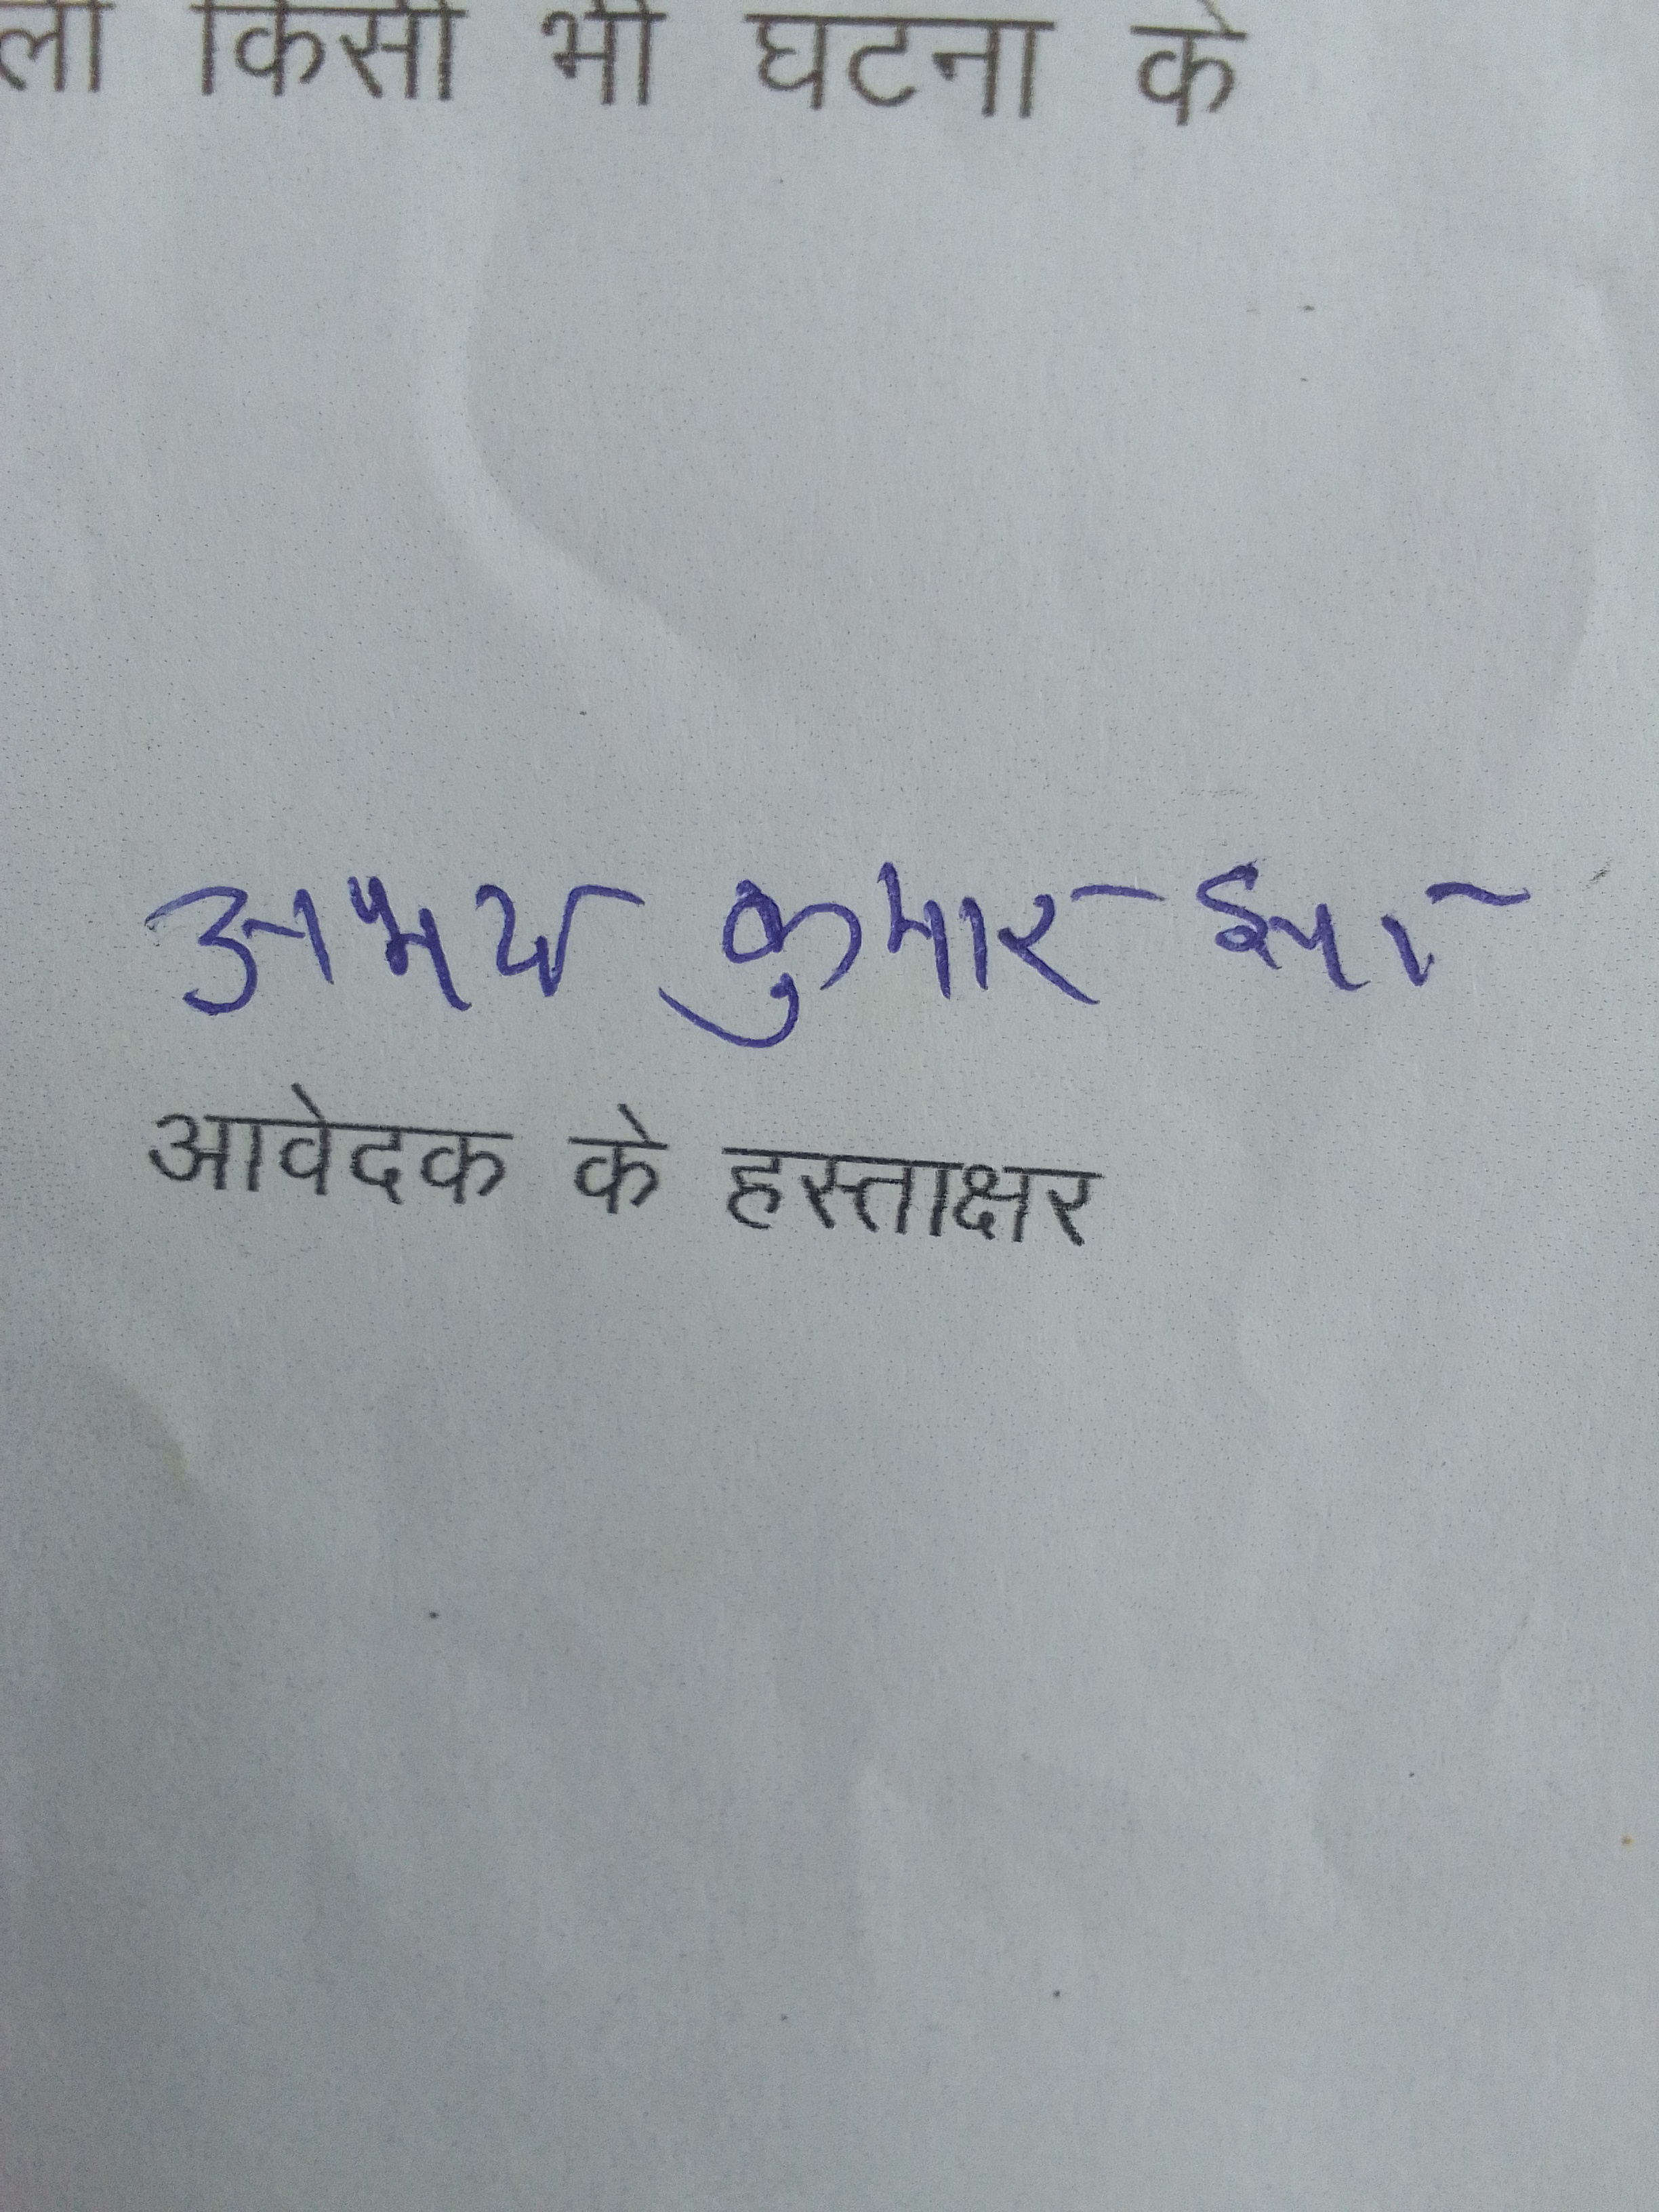 ली किसी भी घटना के
अभय कुमार झा
आवेदक के हस्ताक्षर